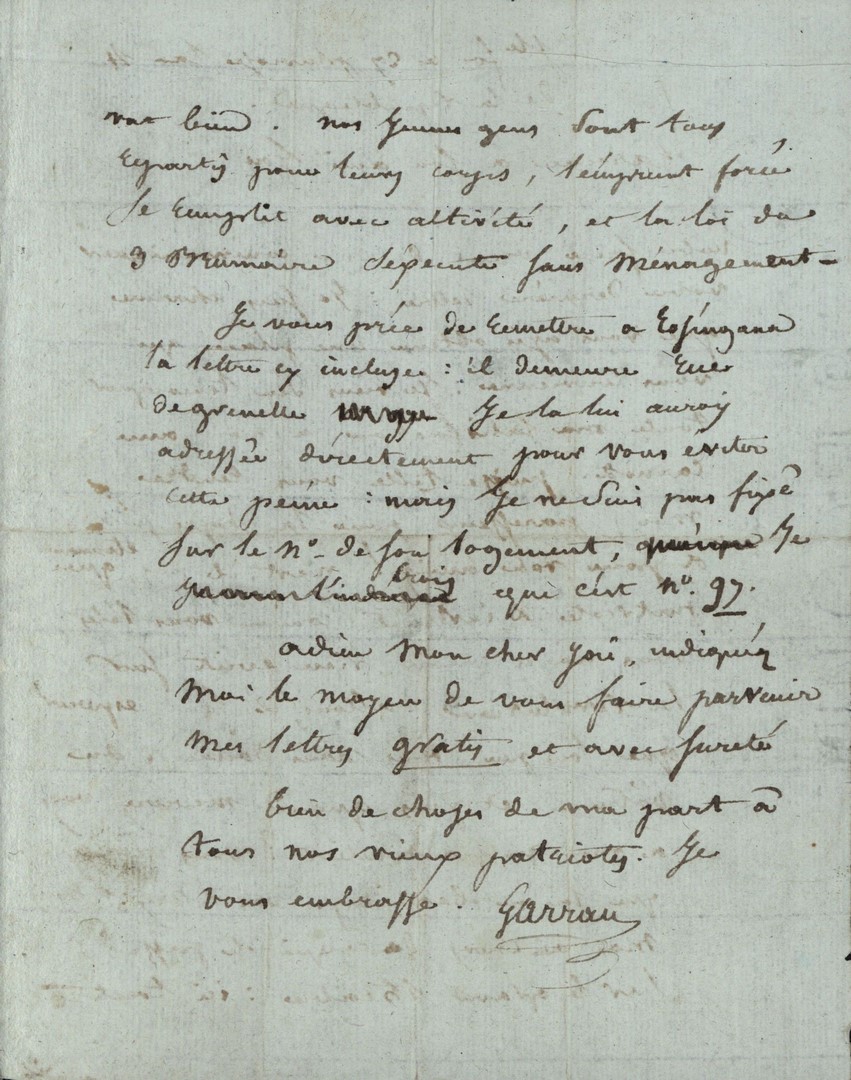 vat bien. nos Jeunes gens sont tous
repartis pour leurs corps, l'emprunt forcé
se remplit avec altivité, et la loi du
3 Brumaire s'éxecute sans Ménagement-
Je vous prie de remettre a Rossignol
la lettre cy incluse : il demeure rüe
de grenelle Je la lui aurois
adressée directement pour vous éviter
cette peine : mais Je ne suis pas fixé
sur le no. de son logement, Je
crois que c'ést no. 97.
adieu Mon cher indiqués
Moi le moyen de vous faire parvenir
Mes lettres gratis et avec sureté
bien de choses de ma part à
tous nos vieux patriotes. Je
vous embrasse. Garrau